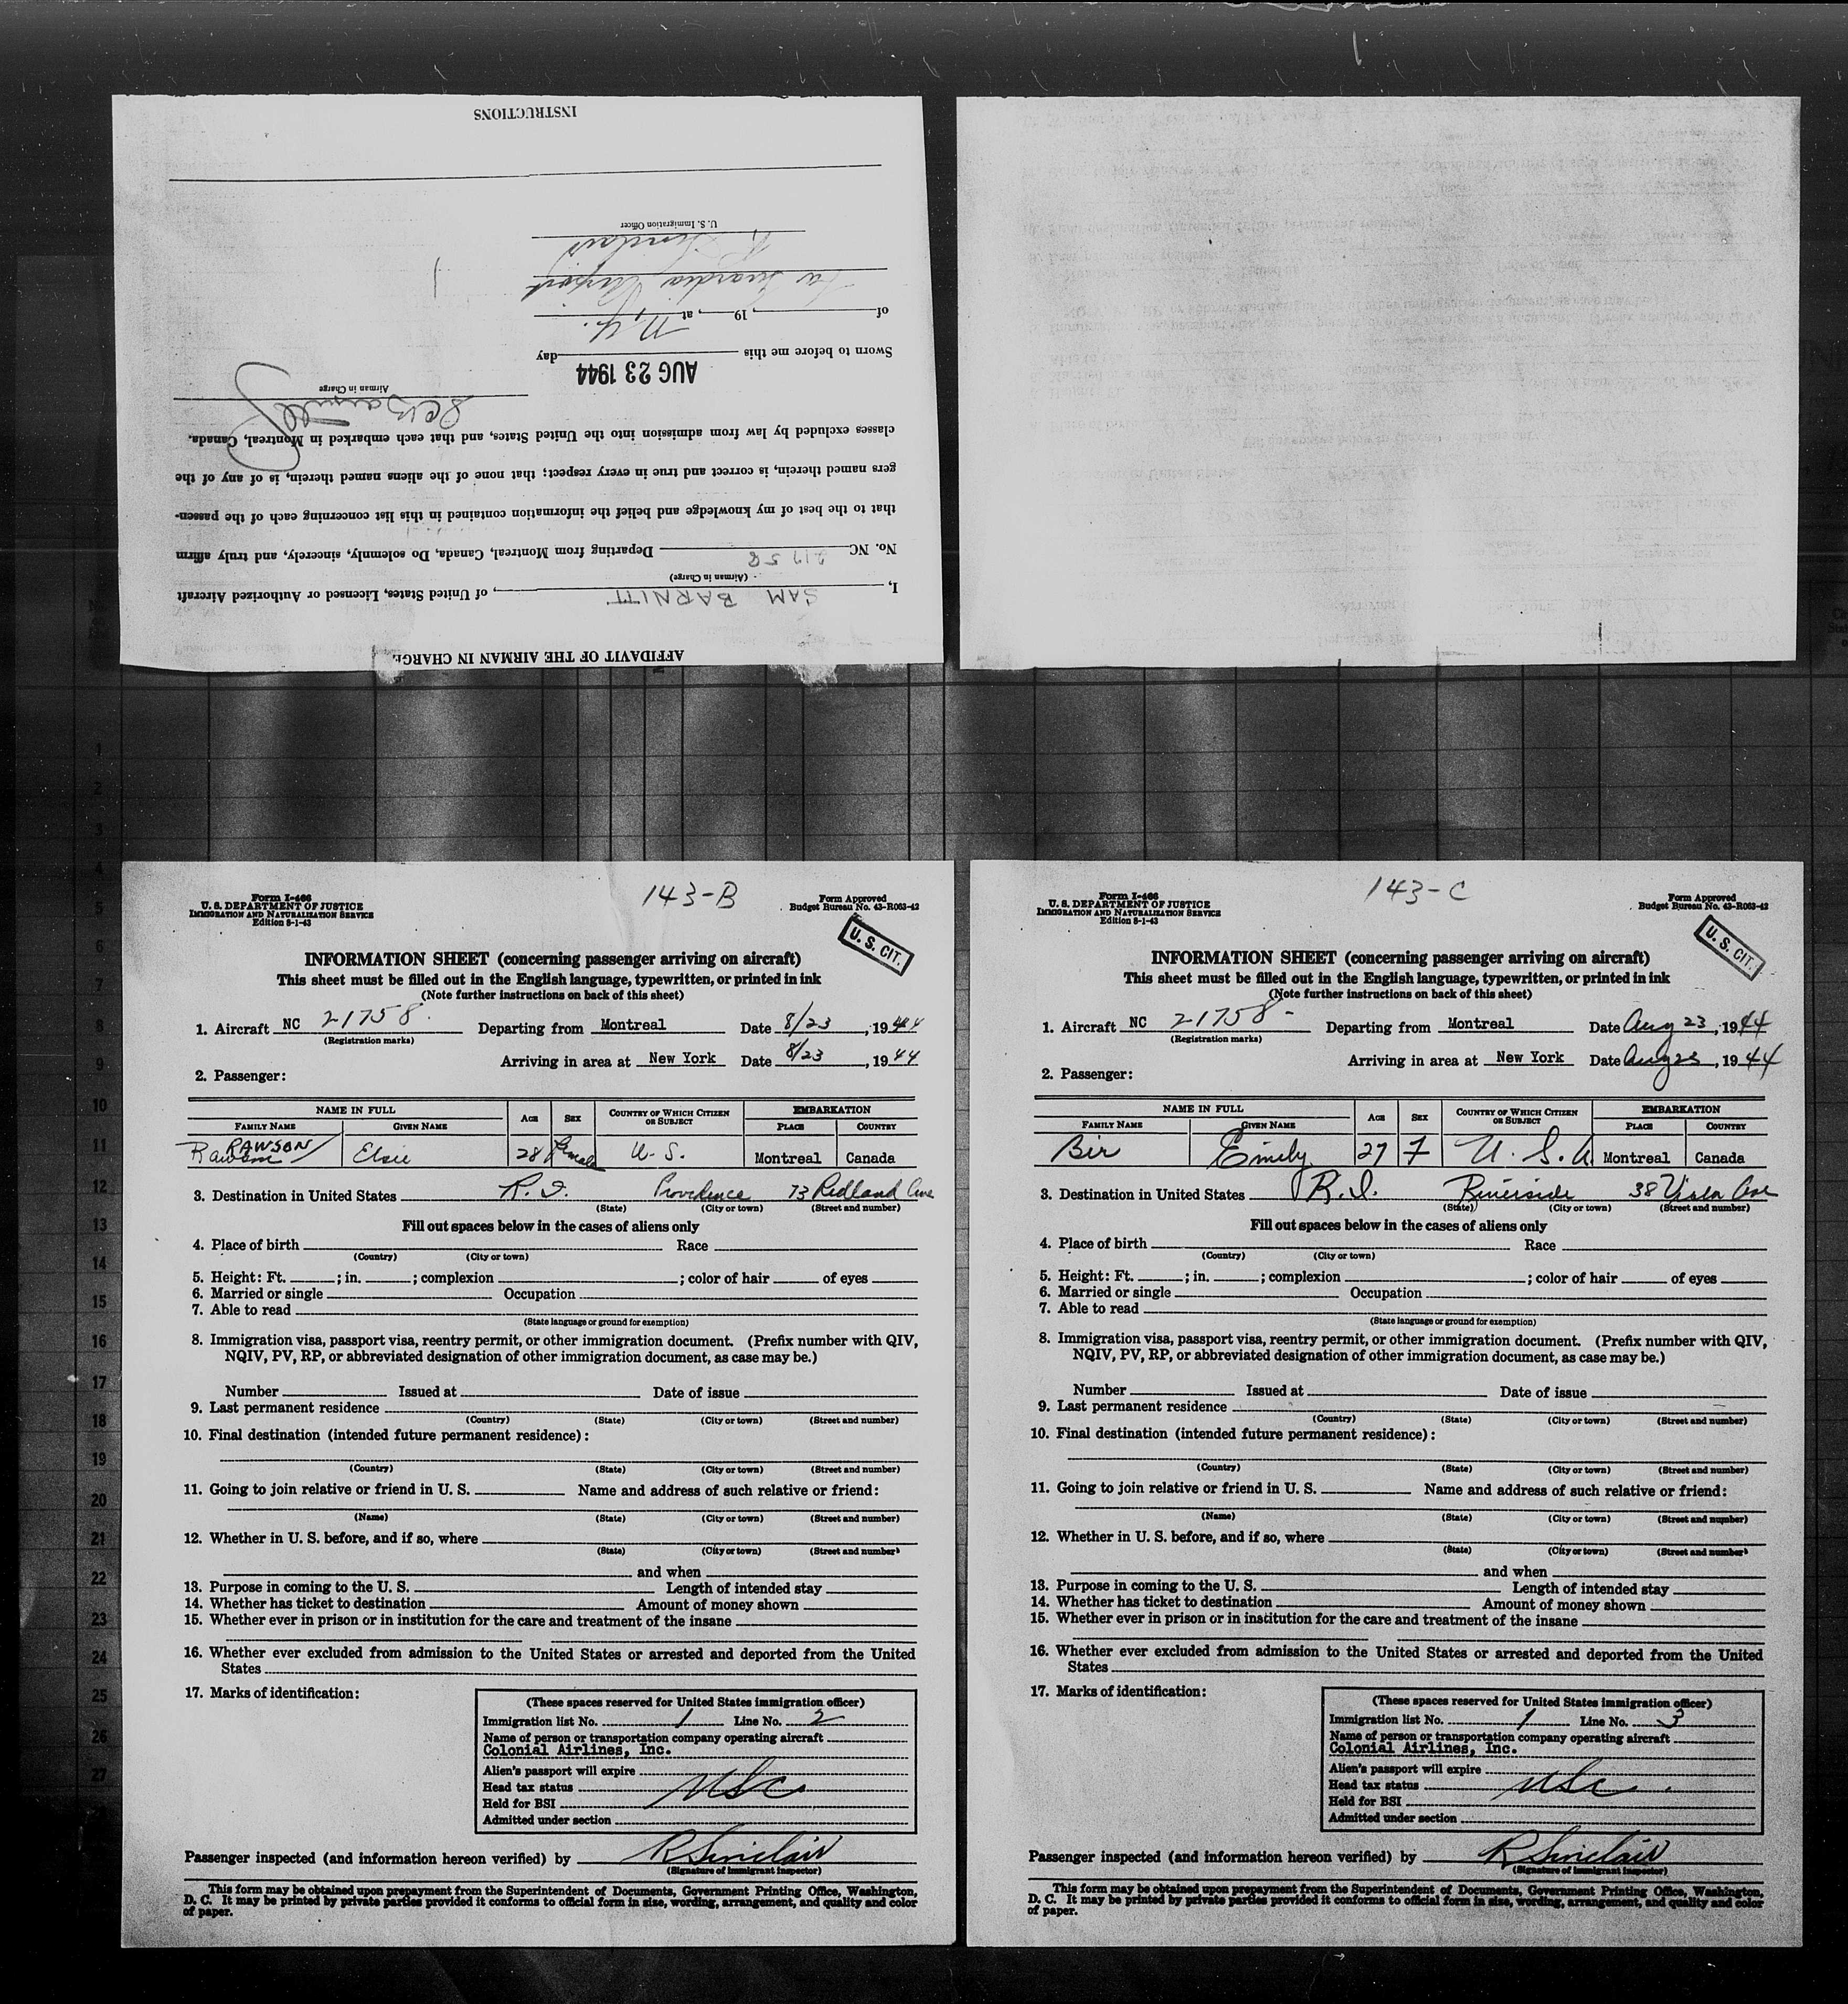 INSTRUCTIONS
U. S. Immigration Officer
R Sinclair
La Guardia Airport
of , 19 , at N.Y.
Sworn to before me this day
AUG 23 1944
Airman in Charge
classes excluded by law from admission into the United States, and that each embarked in Montreal, Canada.
gers named therein, is correct and true in every respect; that none of the aliens named therein, is of any of the
that to the best of my knowledge and belief the information contained in this list concerning each of the passen-
No. NC 21758 Departing from Montreal, Canada, Do solemnly, sincerely, and truly affirm
(Airman in Charge)
I, SAM BARNITT, of United States, Licensed or Authorized Aircraft
AFFIDAVIT OF THE AIRMAN IN CHARGE
143-B
Form I-466
U. S. DEPARTMENT OF JUSTICE
IMMIGRATION AND NATURALIZATION SERVICE
Edition 8-1-43
Form Approved
Budget Bureau No. 43-R063-42
U. S. CIT.
INFORMATION SHEET (concerning passenger arriving on aircraft)
This sheet must be filled out in the English language, typewritten, or printed in ink
(Note further instructions on back of this sheet)
1. Aircraft NC 21758 Departing from Montreal Date 8/23, 1944
(Registration marks)
Arriving in area at New York Date 8/23, 1944
2. Passenger:
NAME IN FULL AGE SEX COUNTRY OF WHICH CITIZEN OR SUBJECT EMBARKATION
FAMILY NAME GIVEN NAME PLACE COUNTRY
RAWSON
Rawson Elsie 28 Female U. S. Montreal Canada
3. Destination in United States R. I. Providence 73 Redland Ave
(State) (City or town) (Street and number)
Fill out spaces below in the cases of aliens only
4. Place of birth Race
(Country) (City or town)
5. Height: Ft. ; in. ; complexion ; color of hair of eyes
6. Married or single Occupation
7. Able to read
(State language or ground for exemption)
8. Immigration visa, passport visa, reentry permit, or other immigration document. (Prefix number with QIV,
NQIV, PV, RP, or abbreviated designation of other immigration document, as case may be.)
Number Issued at Date of issue
9. Last permanent residence
(Country) (State) (City or town) (Street and number)
10. Final destination (intended future permanent residence):
(Country) (State) (City or town) (Street and number)
11. Going to join relative or friend in U. S. Name and address of such relative or friend:
(Name) (State) (City or town) (Street and number)
12. Whether in U. S. before, and if so, where
(State) (City or town) (Street and number)
and when
13. Purpose in coming to the U. S. Length of intended stay
14. Whether has ticket to destination Amount of money shown
15. Whether ever in prison or in institution for the care and treatment of the insane
16. Whether ever excluded from admission to the United States or arrested and deported from the United
States
17. Marks of identification:
(These spaces reserved for United States immigration officer)
Immigration list No. 1 Line No. 2
Name of person or transportation company operating aircraft
Colonial Airlines, Inc.
Alien's passport will expire
Head tax status USC
Held for BSI
Admitted under section
Passenger inspected (and information hereon verified) by R Sinclair
(Signature of immigrant inspector)
This form may be obtained upon prepayment from the Superintendent of Documents, Government Printing Office, Washington,
D. C. It may be printed by private parties provided it conforms to official form in size, wording, arrangement, and quality and color
of paper.
143-C
Form I-466
U. S. DEPARTMENT OF JUSTICE
IMMIGRATION AND NATURALIZATION SERVICE
Edition 8-1-43
Form Approved
Budget Bureau No. 43-R063-42
U. S. CIT.
INFORMATION SHEET (concerning passenger arriving on aircraft)
This sheet must be filled out in the English language, typewritten, or printed in ink
(Note further instructions on back of this sheet)
1. Aircraft NC 21758 - Departing from Montreal Date Aug 23, 1944
(Registration marks)
Arriving in area at New York Date Aug 23, 1944
2. Passenger:
NAME IN FULL AGE SEX COUNTRY OF WHICH CITIZEN OR SUBJECT EMBARKATION
FAMILY NAME GIVEN NAME PLACE COUNTRY
Bir Emily 27 F U. S. A Montreal Canada
3. Destination in United States R. I. Riverside 38 Vista Ave
(State) (City or town) (Street and number)
Fill out spaces below in the cases of aliens only
4. Place of birth Race
(Country) (City or town)
5. Height: Ft. ; in. ; complexion ; color of hair of eyes
6. Married or single Occupation
7. Able to read
(State language or ground for exemption)
8. Immigration visa, passport visa, reentry permit, or other immigration document. (Prefix number with QIV,
NQIV, PV, RP, or abbreviated designation of other immigration document, as case may be.)
Number Issued at Date of issue
9. Last permanent residence
(Country) (State) (City or town) (Street and number)
10. Final destination (intended future permanent residence):
(Country) (State) (City or town) (Street and number)
11. Going to join relative or friend in U. S. Name and address of such relative or friend:
(Name) (State) (City or town) (Street and number)
12. Whether in U. S. before, and if so, where
(State) (City or town) (Street and number)
and when
13. Purpose in coming to the U. S. Length of intended stay
14. Whether has ticket to destination Amount of money shown
15. Whether ever in prison or in institution for the care and treatment of the insane
16. Whether ever excluded from admission to the United States or arrested and deported from the United
States
17. Marks of identification:
(These spaces reserved for United States immigration officer)
Immigration list No. 1 Line No. 3
Name of person or transportation company operating aircraft
Colonial Airlines, Inc.
Alien's passport will expire
Head tax status USC
Held for BSI
Admitted under section
Passenger inspected (and information hereon verified) by R Sinclair
(Signature of immigrant inspector)
This form may be obtained upon prepayment from the Superintendent of Documents, Government Printing Office, Washington,
D. C. It may be printed by private parties provided it conforms to official form in size, wording, arrangement, and quality and color
of paper.